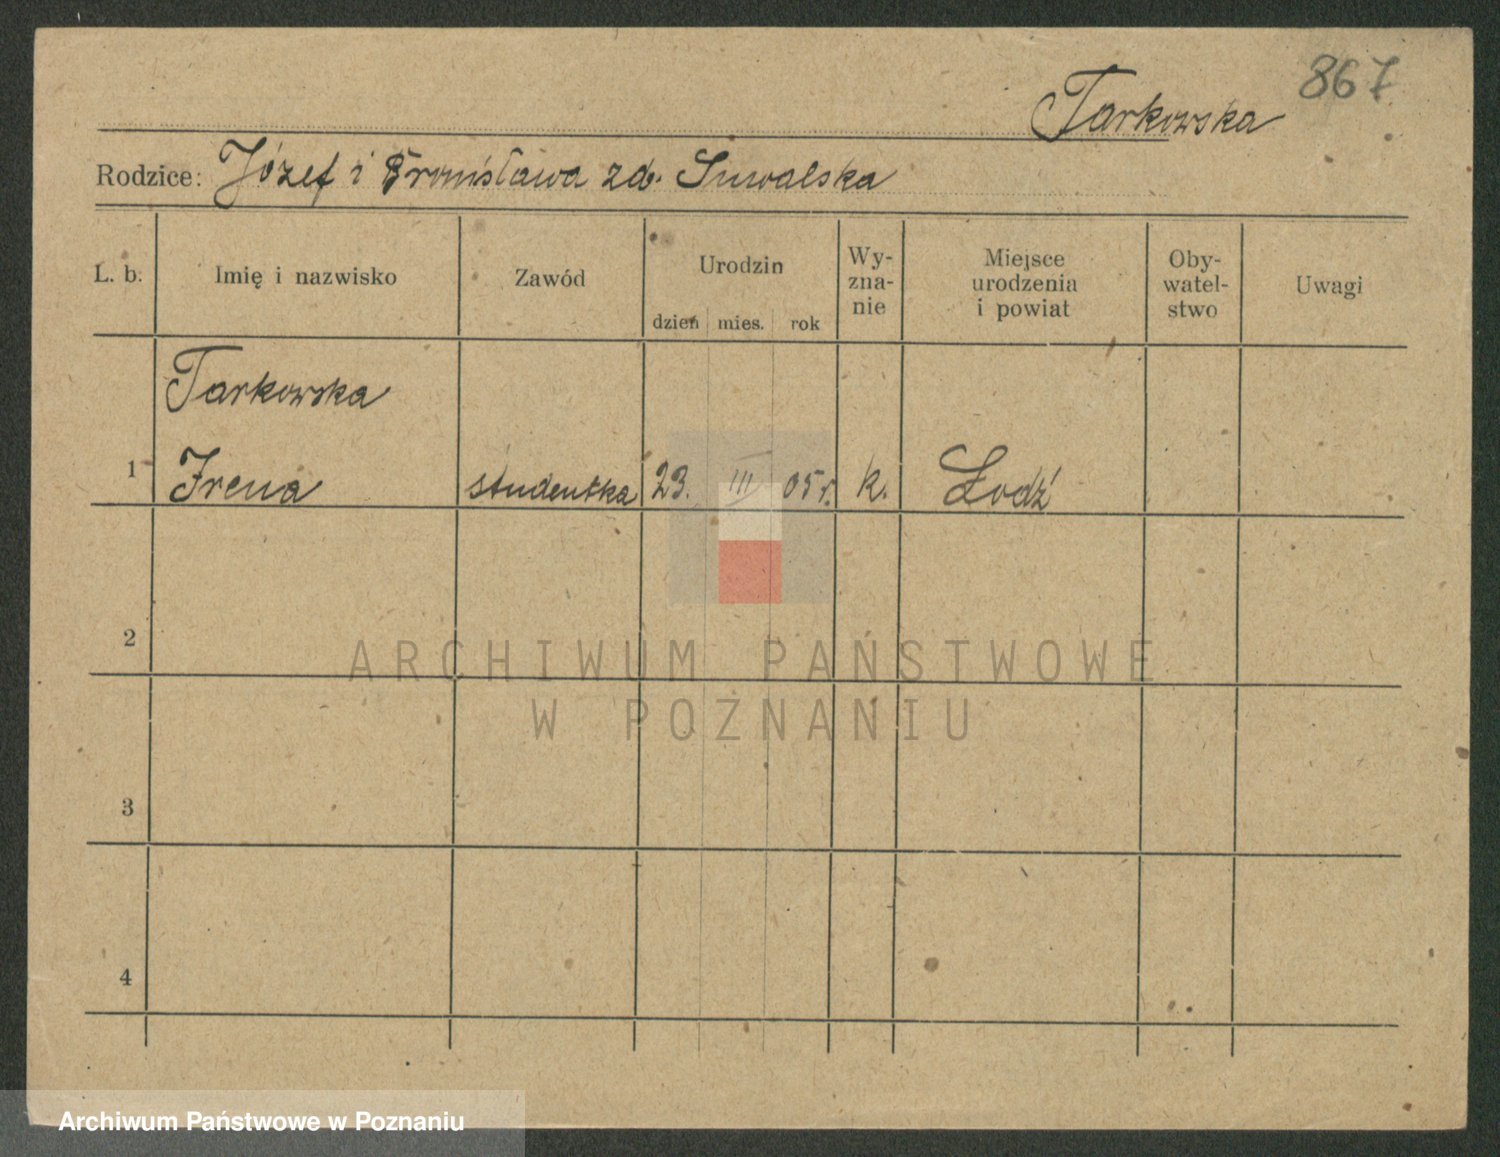 867
Tarkowska
Rodzice: Józef i Bronisława zd. Suwalska
L. b. Imię i nazwisko Zawód Urodzin dzień mies. rok Wy-zna-nie Miejsce urodzenia i powiat Oby-watel-stwo Uwagi
Tarkowska
1 Irena studentka 23. III 05 r. k. Łodź
2
ARCHIWUM PAŃSTWOWE
W POZNANIU
3
4
Archiwum Państwowe w Poznaniu